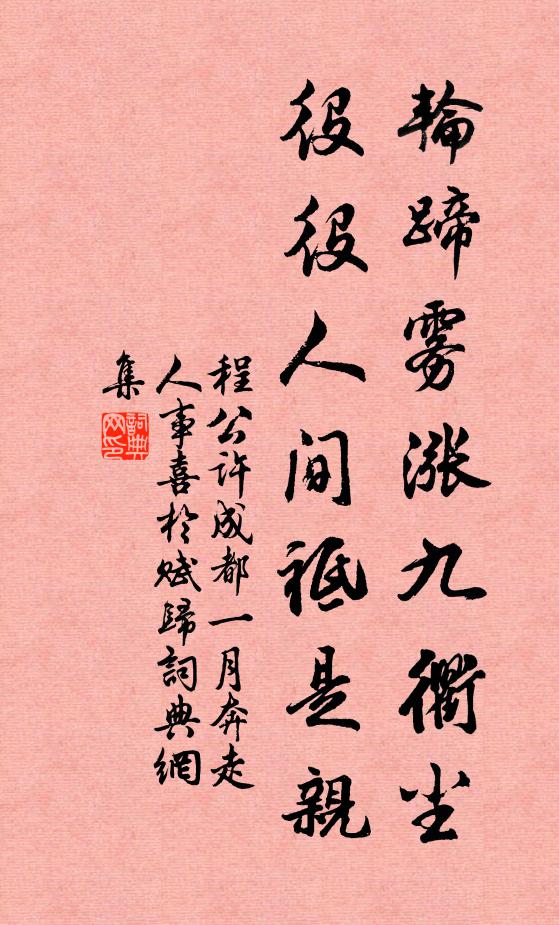 輪蹄雾漲九衢尘
役役人间祗是親
程公许成都一月奔走
人事喜於赋歸詞典網
集
詞典
网印